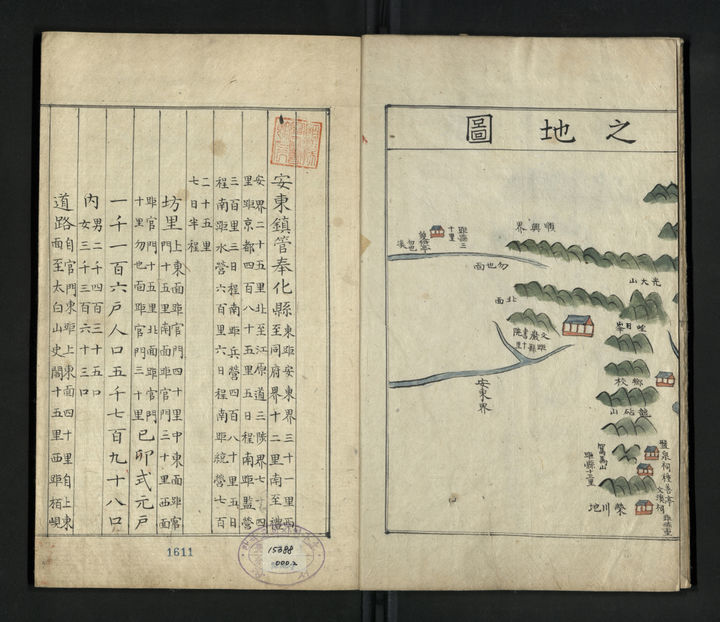 之地圖
順興界
勿也面
光大山
北面
鄕校
安東界
榮川地
安東鎭管奉化縣
東距安東界三十一里西
至同府界十二里南至禮
安界二十五里北至江原道三陟界七十四
里距京都四百八十五里五日程南距監營
三百里三日程南距兵營四百八十里五日
程南距水營六百里六日程南距統營七百
二十五里
七日半程
坊里
上東面距官門四十里中東面距官
門十五里南面距官門三十里西面
距官門十五里北面距官門
十里勿也面距官門三十里
己卯式元戶
一千一百六戶人口五千七百九十八口
內
男二千四百三十五口
女三千三百六十三口
道路
自官門東距上東面四十里自上東
面至太白山史閣十五里西距栢峴
1611
15388
000.2